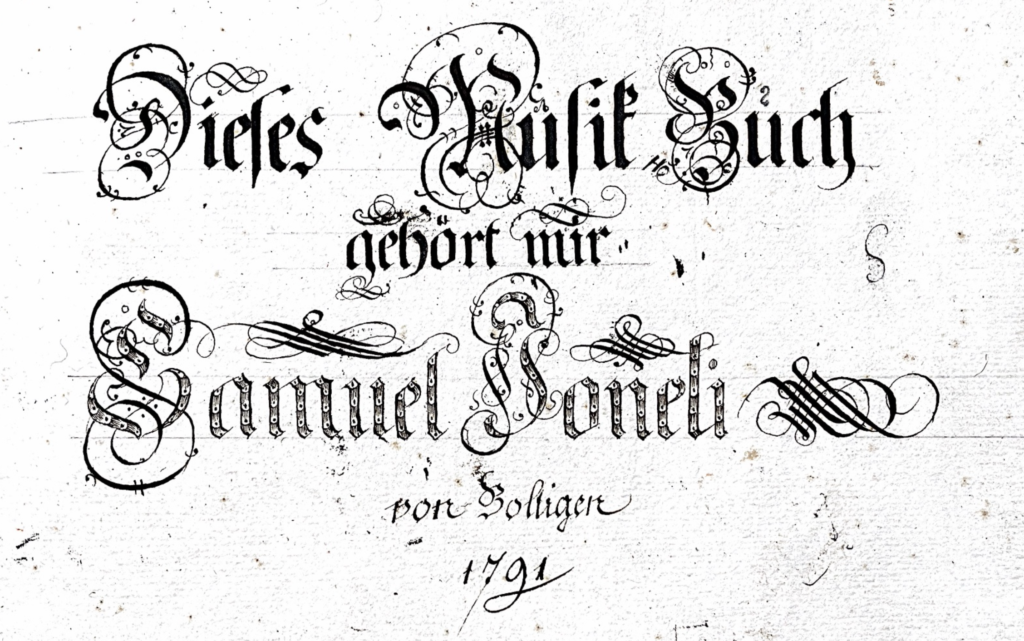 Dieses Musik Buch
gehört mir
Samuel Joneli
von Boltigen
1791